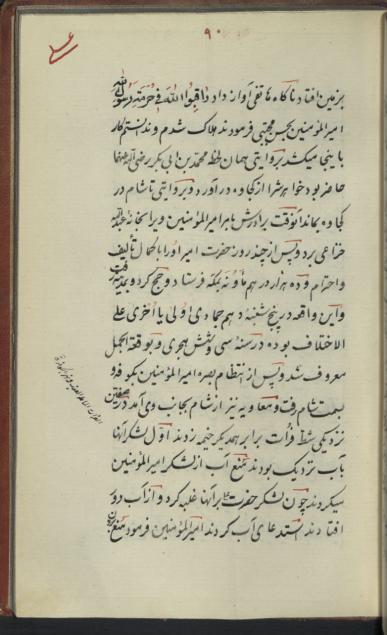 ۹۰
بر زمین افتاد ناکاه هاتفی آواز داد راقبوا الله فی حرمة رسول الله
امیر المؤمنین بحسن مجتبی فرمودند هلاک شدم و ندانستم کار
باینجا میکشد بروایتی همان لحظه محمد بن ابی بکر رضی الله عنهما
حاضر بود خواهرش را از کجاوه در آورد و بروایتی تا شام در
کجاوه بماند آنوقت برادرش بامر امیر المؤمنین ویرا بخانه عبدالله
خزاعی برد و پس از چند روز حضرت امیر او را با کمال تألیف
واحترام و ده هزار درهم مأونه بمکه فرستاد و حج کرد و بمدینه رفت
واین واقعه در پنج شنبه دهم جمادی اولی یا اخری علی
الاختلاف بوده در سنه سی و شش هجری و بوقعة الجمل
معروف شد و پس از انتظام بصره امیر المؤمنین بکوفه و
بسمت شام رفت و معاویه نیز از شام بجانب وی آمد در صفین
نزدیکی شط فرات برابر همدیکر خیمه زدند اول لشکر آنها
بآب نزدیک بودند منع آب از لشکر امیر المؤمنین
میکردند چون لشکر حضرت بر آنها غلبه کرد و از آب دور
افتادند استدعای آب کردند امیر المؤمنین فرمود منع